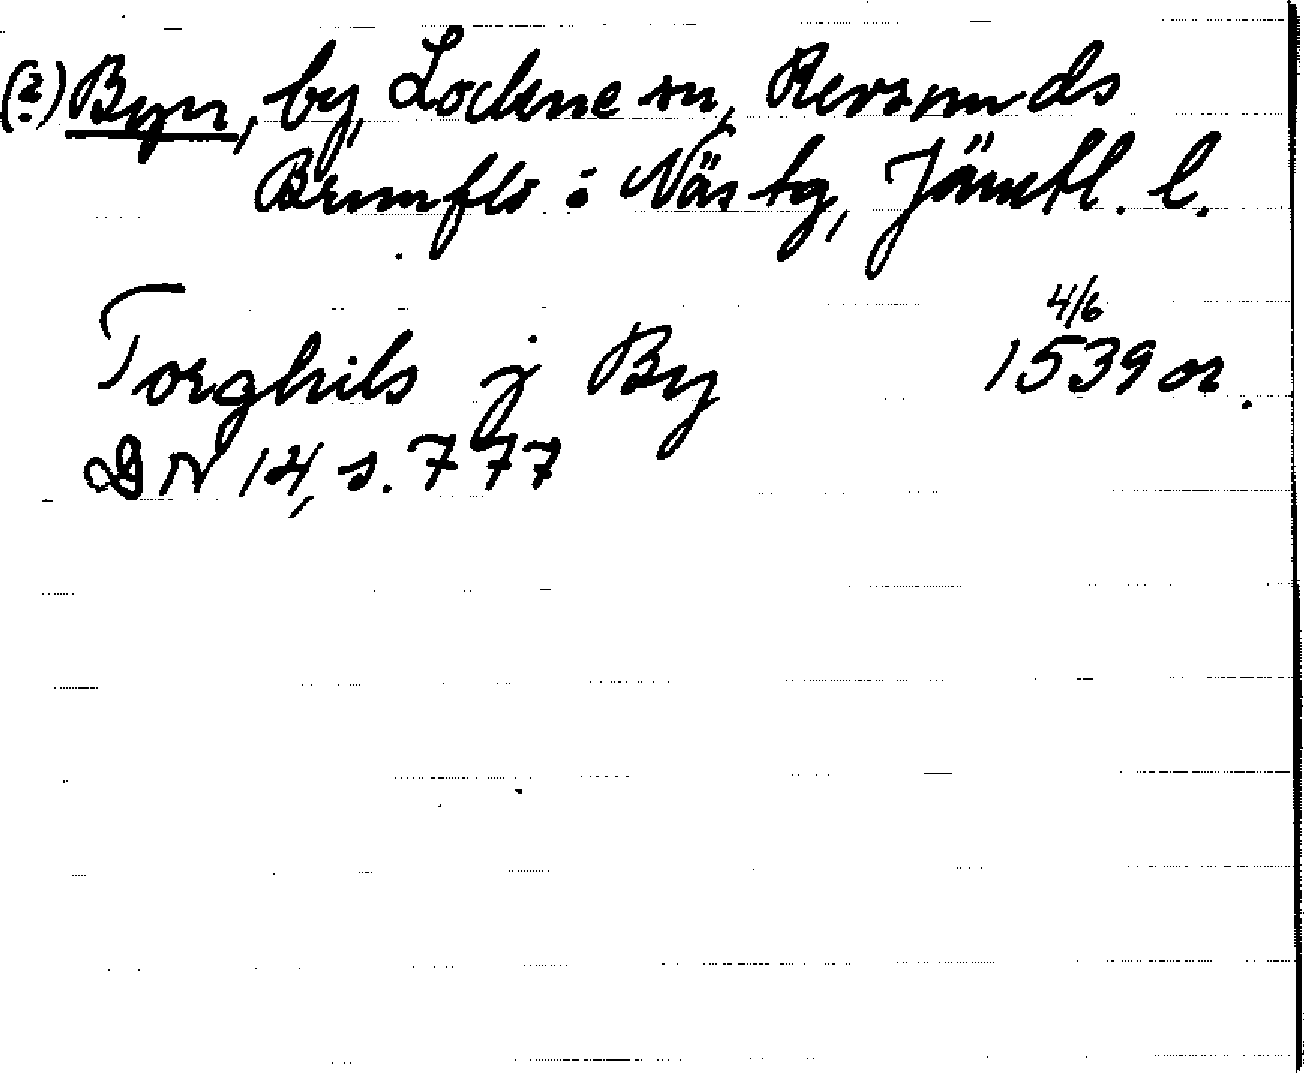 (2) Byn, by, Lockne sn, Revsunds
Brunflo o Näs tg, Jämtl. l.
4/6
Torghils j By 1539 or.
DN 14, s. 777